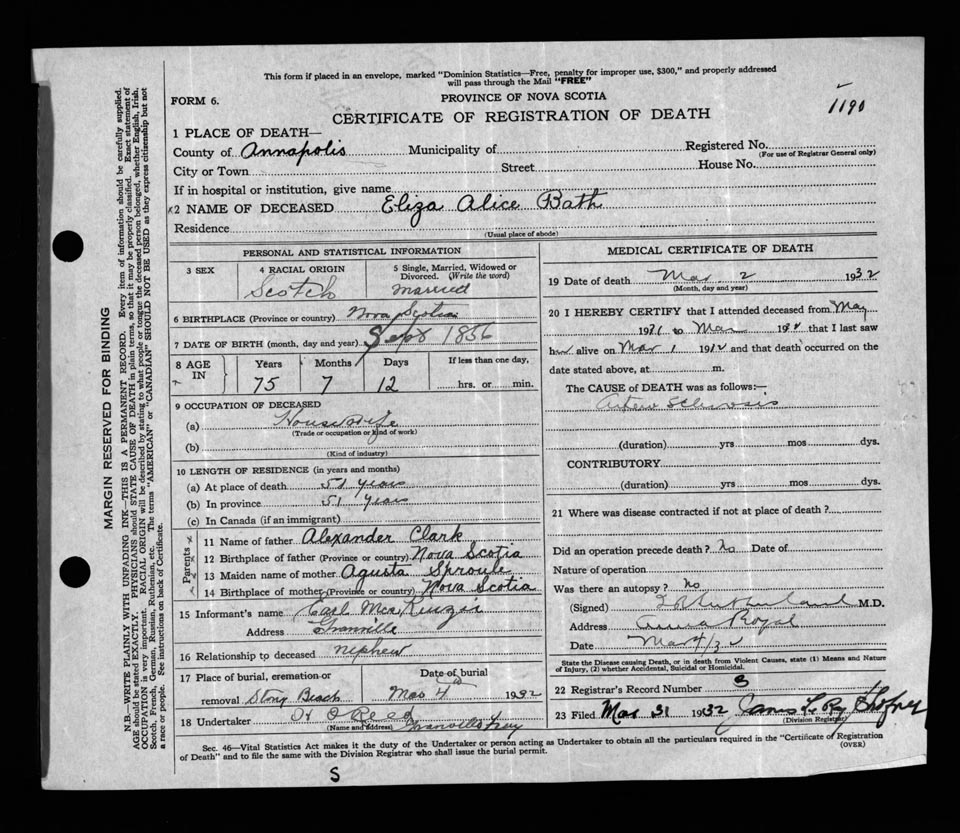 This form if placed in an envelope, marked "Dominion Statistics—Free, penalty for improper use, $300," and properly addressed
will pass through the Mail "FREE"
FORM 6.
PROVINCE OF NOVA SCOTIA
1190
CERTIFICATE OF REGISTRATION OF DEATH
1 PLACE OF DEATH—
County of Annapolis Municipality of Registered No.
(For use of Registrar General only)
City or Town Street House No.
If in hospital or institution, give name
2 NAME OF DECEASED Eliza Alice Bath
Residence
(Usual place of abode)
PERSONAL AND STATISTICAL INFORMATION
3 SEX 4 RACIAL ORIGIN 5 Single, Married, Widowed or Divorced. (Write the word)
Scotch married
6 BIRTHPLACE (Province or country) Nova Scotia
7 DATE OF BIRTH (month, day and year) Sept 1856
8 AGE IN Years Months Days If less than one day,
75 7 12 hrs. or min.
9 OCCUPATION OF DECEASED
(a) Housewife
(Trade or occupation or kind of work)
(b)
(Kind of industry)
10 LENGTH OF RESIDENCE (in years and months)
(a) At place of death 51 years
(b) In province 51 years
(c) In Canada (if an immigrant)
Parents
11 Name of father Alexander Clark
12 Birthplace of father (Province or country) Nova Scotia
13 Maiden name of mother Agusta Sproule
14 Birthplace of mother (Province or country) Nova Scotia
15 Informant's name Carl McKenzie
Address Granville
16 Relationship to deceased nephew
17 Place of burial, cremation or removal Stony Beach
Date of burial Mar 4 1932
18 Undertaker O Reed
(Name and address) Granville Frey
MEDICAL CERTIFICATE OF DEATH
19 Date of death Mar 2 1932
(Month, day and year)
20 I HEREBY CERTIFY that I attended deceased from May
19 to Mar 19 that I last saw
her alive on Mar 1 19 and that death occurred on the
date stated above, at m.
The CAUSE of DEATH was as follows:—
Arterio Sclerosis
(duration) yrs mos dys.
CONTRIBUTORY
(duration) yrs mos dys.
21 Where was disease contracted if not at place of death?
Did an operation precede death? no Date of
Nature of operation
Was there an autopsy? no
(Signed) M.D.
Address Anna Royal
Date Mar 4/32
State the Disease causing Death, or in death from Violent Causes, state (1) Means and Nature
of Injury, (2) whether Accidental, Suicidal or Homicidal.
22 Registrar's Record Number 3
23 Filed Mar 31 1932
(Division Registrar)
Sec. 46—Vital Statistics Act makes it the duty of the Undertaker or person acting as Undertaker to obtain all the particulars required in the "Certificate of Registration
of Death" and to file the same with the Division Registrar who shall issue the burial permit.
(OVER)
S
MARGIN RESERVED FOR BINDING
N.B.—WRITE PLAINLY WITH UNFADING INK—THIS IS A PERMANENT RECORD. Every item of information should be carefully supplied.
AGE should be stated EXACTLY. PHYSICIANS should STATE CAUSE OF DEATH in plain terms, so that it may be properly classified. Exact statement of
OCCUPATION is very important. RACIAL ORIGIN will be described by stating to what people or tongue the deceased person belonged, whether English, Irish,
Scotch, French, German, Russian, Ruthenian, etc. The terms "AMERICAN" or "CANADIAN" SHOULD NOT BE USED as they express citizenship but not
a race or people. See instructions on back of Certificate.